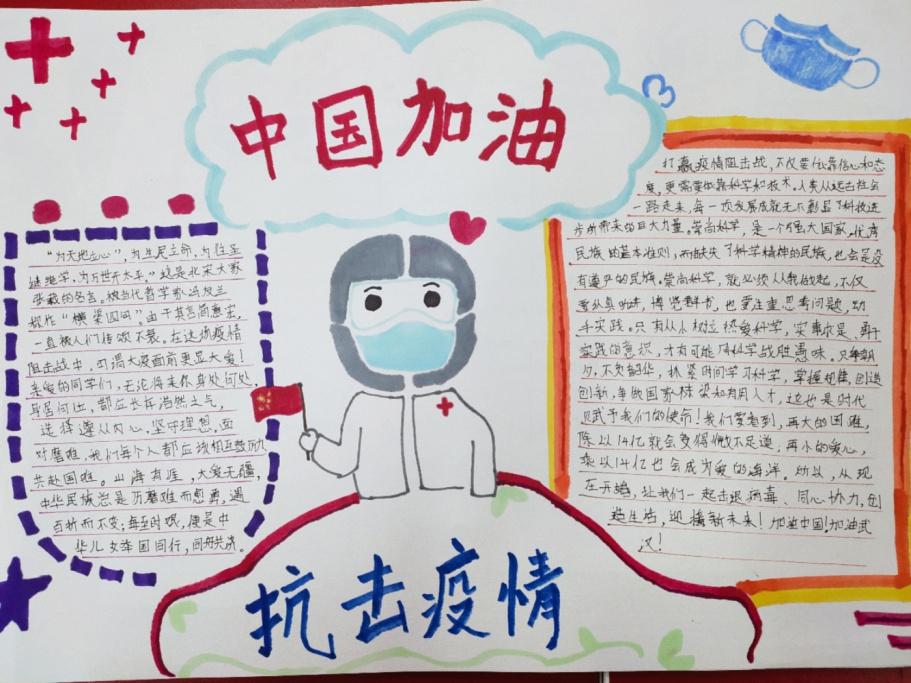 中国加油
“为天地立心”,为生民立命,为往圣
继绝学,为万世开太平。”这是北宋大家
张载的名言。被当代哲学家冯友兰
概作“横渠四句”。由于其言简意宏,
一直被人们传颂不衰。在这场疫情
阻击战中,可谓大疫面前更显大爱!
亲爱的同学们,无论将来你身处何处,
身居何位,都应长存浩然之气,
选择遵从内心,坚守理想,面
对磨难,我们每个人都应该相互鼓励
共赴国难。山海有涯,大爱无疆,
中华民族总是历磨难而愈勇,遇
百折而不变;每至时艰,便是中
华儿女举国同行,同舟共济。
打赢疫情阻击战,不仅要依靠信心和态
度,更需要依靠科学和技术。人类从远古社会
一路走来,每一项发展成就无不彰显了科技进
步所带来的巨大力量。崇尚科学,是一个强大国家,优秀
民族的基本准则,而缺失了科学精神的民族,也会是没
有尊严的民族。崇尚科学,就必须从我做起,不仅
要认真听讲,博览群书,也要注重思考问题,动
手实践。只有从小树立热爱科学,实事求是、勇于
实践的意识,才有可能用科学战胜愚昧。只争朝
夕,不负韶华,抓紧时间学习科学,掌握规律,创造
创新,争做国家栋梁和有用人才,这也是时代
赋予我们的使命!我们要看到,再大的困难,
除以14亿就会变得微不足道;再小的爱心,
乘以14亿也会成为爱的海洋。所以,从现
在开始,让我们一起击退病毒、同心协力,创
造生活,迎接新未来!加油中国!加油武
汉!
抗击疫情